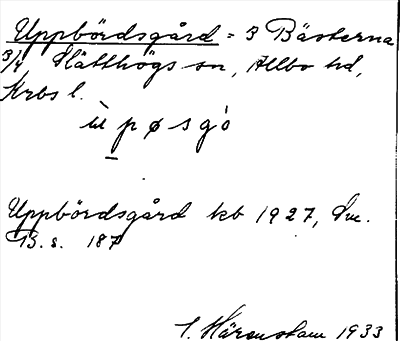 Uppbördsgård = 3 Bästerna
3/4 Slätthögs sn, Allbo hd,
Krbs l.
ùpøsgò
Uppbördsgård kb 1927, Sve.
B. s. 187
S. Härenstam 1933